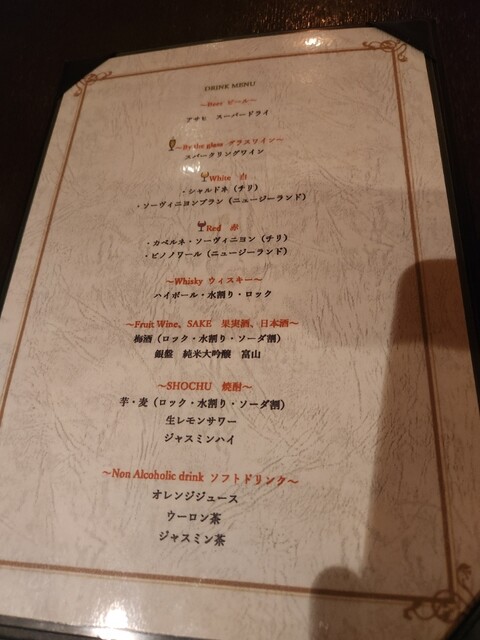 DRINK MENU
～Beer ビール～
アサヒ スーパードライ
～By the glass グラスワイン～
スパークリングワイン
White 白
・シャルドネ（チリ）
・ソーヴィニヨンブラン（ニュージーランド）
Red 赤
・カベルネ・ソーヴィニヨン（チリ）
・ピノノワール（ニュージーランド）
～Whisky ウィスキー～
ハイボール・水割り・ロック
～Fruit Wine、SAKE 果実酒、日本酒～
梅酒（ロック・水割り・ソーダ割）
銀盤 純米大吟醸 富山
～SHOCHU 焼酎～
芋・麦（ロック・水割り・ソーダ割）
生レモンサワー
ジャスミンハイ
～Non Alcoholic drink ソフトドリンク～
オレンジジュース
ウーロン茶
ジャスミン茶